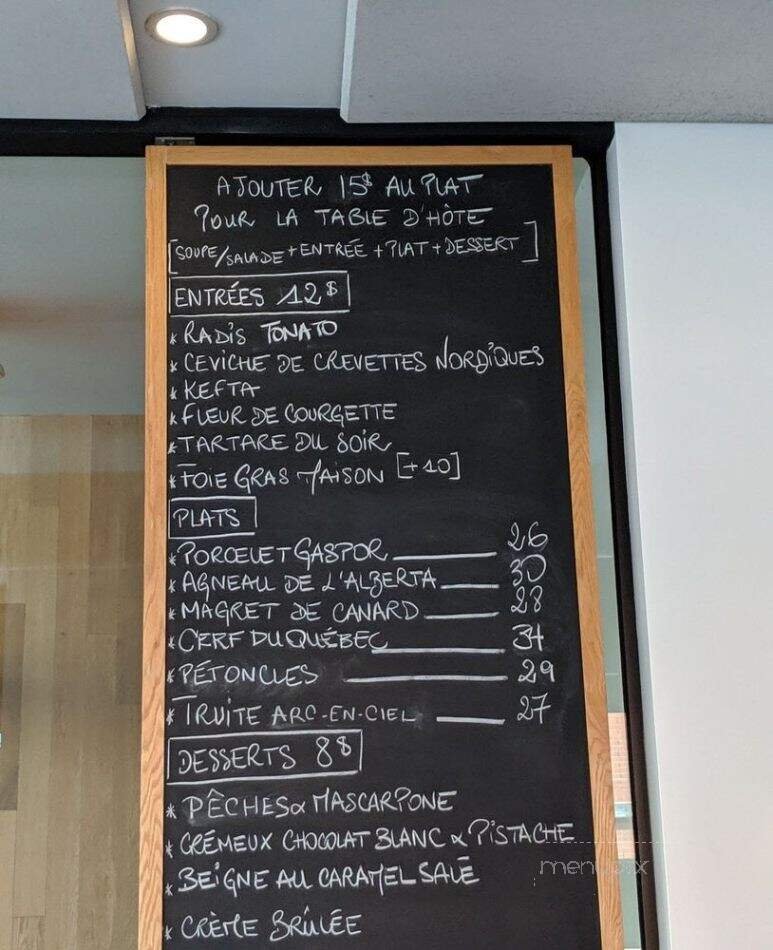 AJOUTER 15$ AU PLAT
POUR LA TABLE D'HÔTE
[SOUPE/SALADE + ENTRÉE + PLAT + DESSERT]
ENTRÉES 12$
* RADIS TONATO
* CEVICHE DE CREVETTES NORDIQUES
* KEFTA
* FLEUR DE COURGETTE
* TARTARE DU SOIR
* FOIE GRAS MAISON [+10]
PLATS
* PORCELET GASPOR 26
* AGNEAU DE L'ALBERTA 30
* MAGRET DE CANARD 28
* CERF DU QUÉBEC 34
* PÉTONCLES 29
* TRUITE ARC-EN-CIEL 27
DESSERTS 8$
* PÊCHES & MASCARPONE
* CRÉMEUX CHOCOLAT BLANC & PISTACHE
* BEIGNE AU CARAMEL SALÉ
* CRÈME BRÛLÉE
menupix